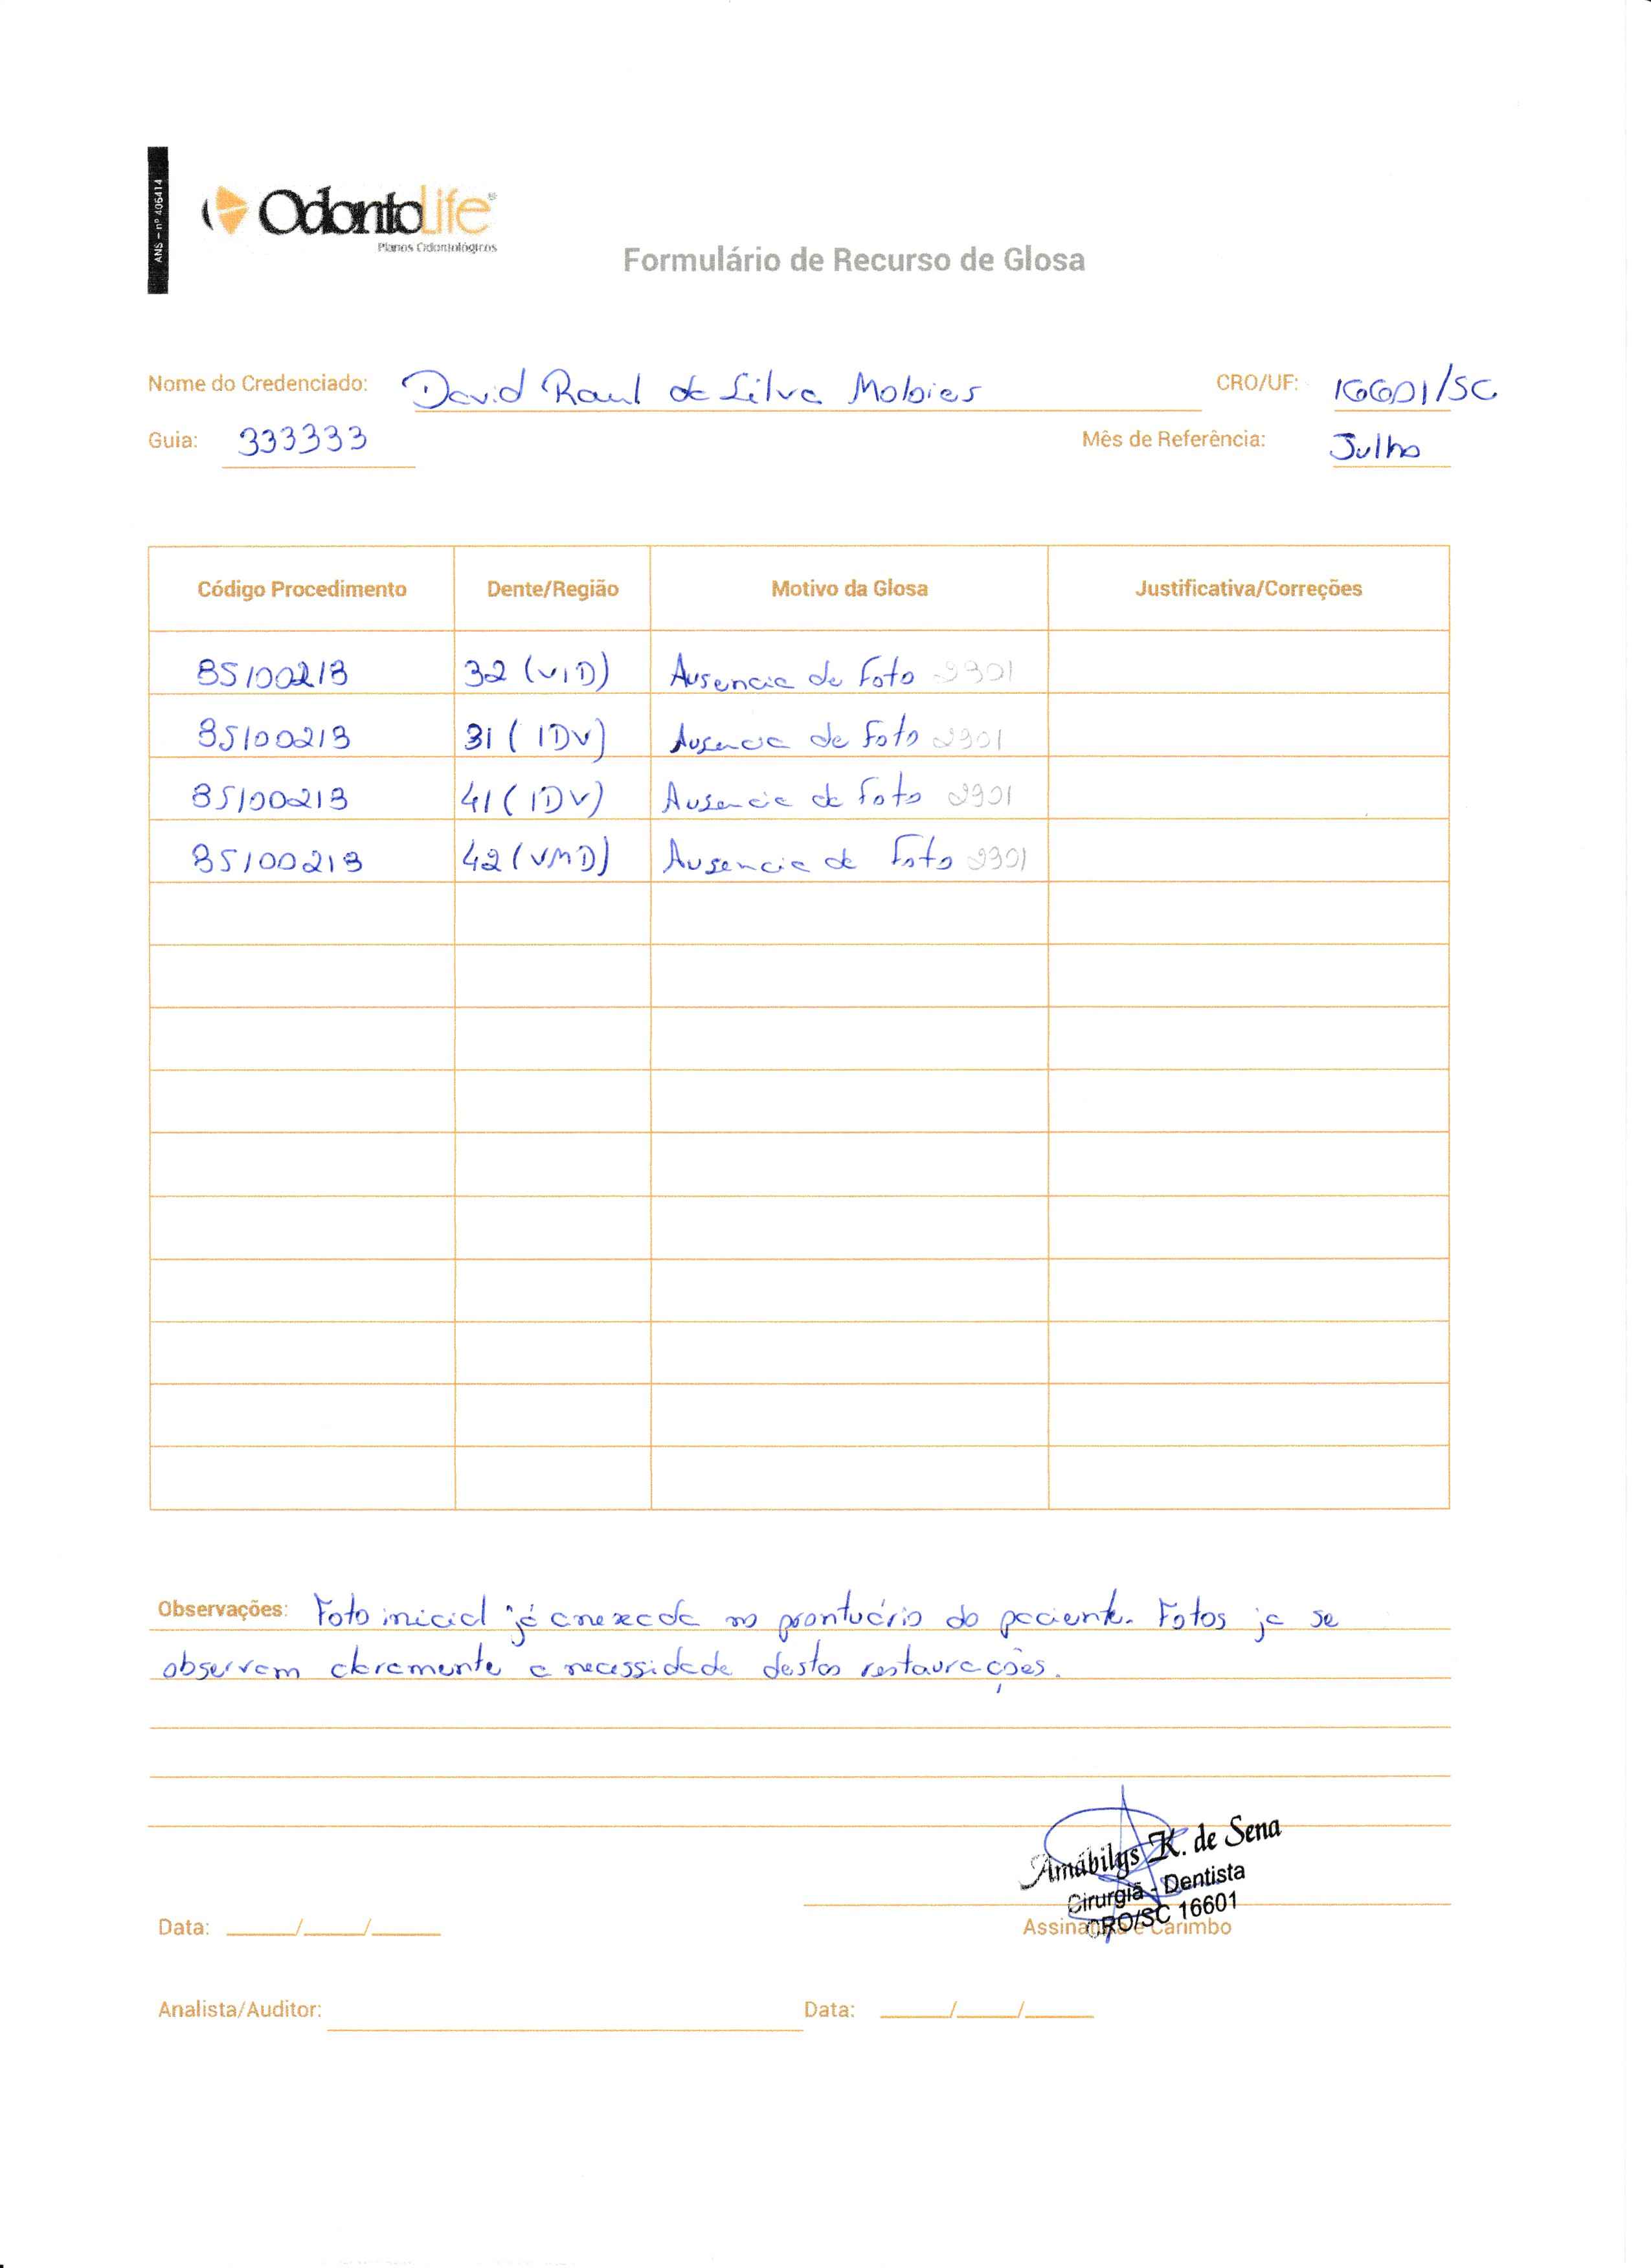 ANS - nº 406414
OdontoLife®
Planos Odontológicos
Formulário de Recurso de Glosa
Nome do Credenciado: David Raul da Silva CRO/UF: 16601/SC
Guia: 333333 Mês de Referência: Julho
Código Procedimento Dente/Região Motivo da Glosa Justificativa/Correções
85100218 32 (VID) Ausencia de Foto 9901
85100218 31 (IDV) Ausencia de Foto 9901
85100218 41 (IDV) Ausencia de Foto 9901
85100218 42 (VMD) Ausencia de Foto 9901
Observações: Foto inicial já anexada no prontuário do paciente. Fotos ja se
observam claramente a necessidade destas restaurações.
Amábilys K. de Sena
Cirurgiã - Dentista
CRO/SC 16601
Data: ____/____/____ Assinatura e Carimbo
Analista/Auditor: Data: ____/____/____